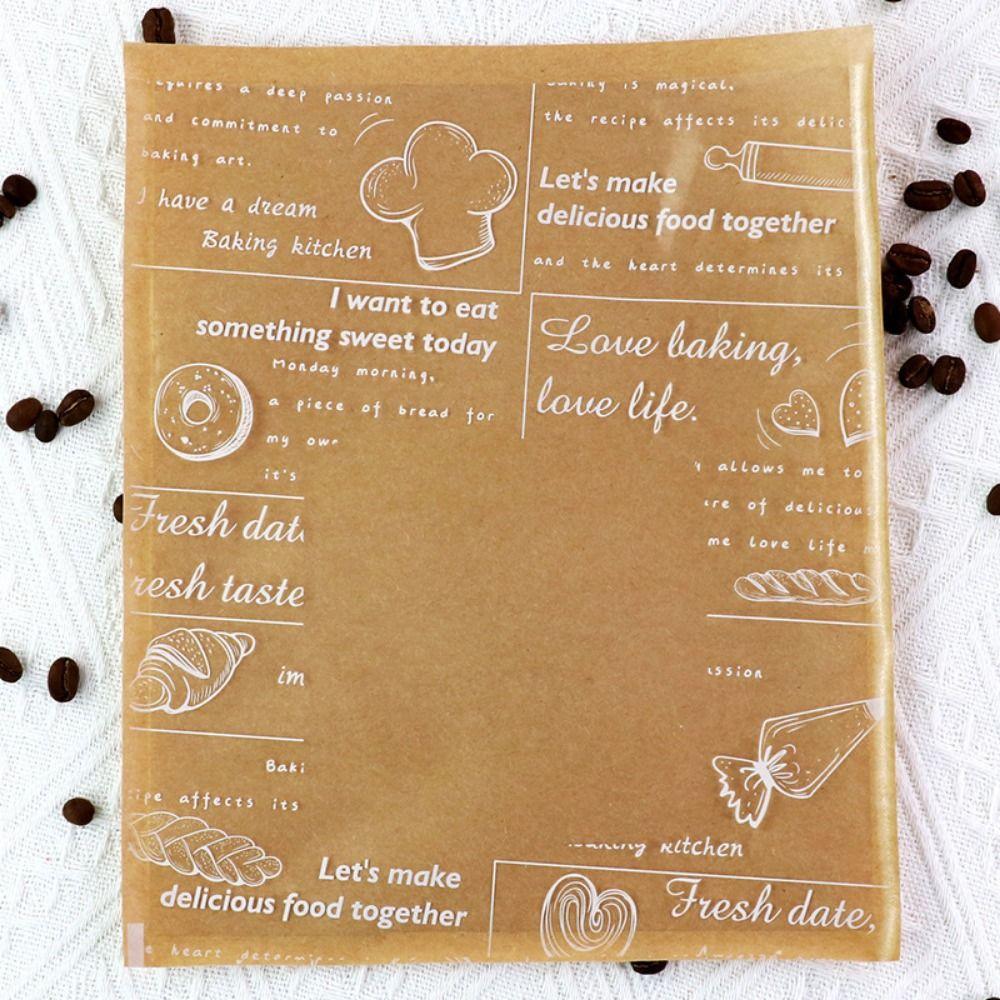 a deep passion
and commitment to
baking art.
I have a dream
Baking kitchen
is magical.
the recipe affects its
Let's make
delicious food together
and the heart determines its
I want to eat
something sweet today
Monday morning,
a piece of bread for
my own
it's
Love baking,
love life.
allows me to
of delicious
me love life
Fresh
taste
affects its
Let's make
delicious food together
heart
kitchen
Fresh date,